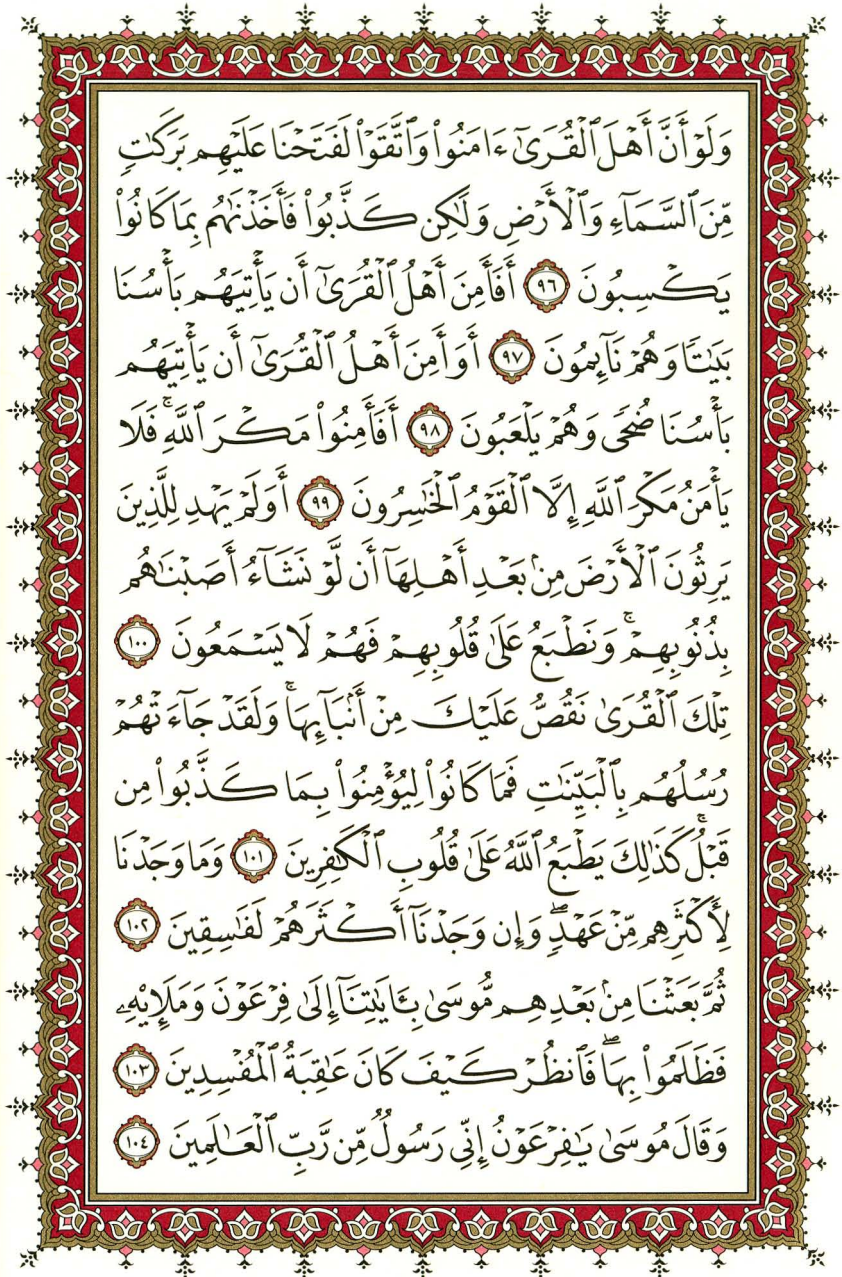 وَلَوْ أَنَّ أَهْلَ ٱلْقُرَىٰٓ ءَامَنُوا۟ وَٱتَّقَوْا۟ لَفَتَحْنَا عَلَيْهِم بَرَكَٰتٍ
مِّنَ ٱلسَّمَآءِ وَٱلْأَرْضِ وَلَٰكِن كَذَّبُوا۟ فَأَخَذْنَٰهُم بِمَا كَانُوا۟
يَكْسِبُونَ ٩٦ أَفَأَمِنَ أَهْلُ ٱلْقُرَىٰٓ أَن يَأْتِيَهُم بَأْسُنَا
بَيَٰتًا وَهُمْ نَآئِمُونَ ٩٧ أَوَأَمِنَ أَهْلُ ٱلْقُرَىٰٓ أَن يَأْتِيَهُم
بَأْسُنَا ضُحًى وَهُمْ يَلْعَبُونَ ٩٨ أَفَأَمِنُوا۟ مَكْرَ ٱللَّهِ ۚ فَلَا
يَأْمَنُ مَكْرَ ٱللَّهِ إِلَّا ٱلْقَوْمُ ٱلْخَٰسِرُونَ ٩٩ أَوَلَمْ يَهْدِ لِلَّذِينَ
يَرِثُونَ ٱلْأَرْضَ مِنۢ بَعْدِ أَهْلِهَآ أَن لَّوْ نَشَآءُ أَصَبْنَٰهُم
بِذُنُوبِهِمْ ۚ وَنَطْبَعُ عَلَىٰ قُلُوبِهِمْ فَهُمْ لَا يَسْمَعُونَ ١٠٠
تِلْكَ ٱلْقُرَىٰ نَقُصُّ عَلَيْكَ مِنْ أَنۢبَآئِهَا ۚ وَلَقَدْ جَآءَتْهُمْ
رُسُلُهُم بِٱلْبَيِّنَٰتِ فَمَا كَانُوا۟ لِيُؤْمِنُوا۟ بِمَا كَذَّبُوا۟ مِن
قَبْلُ ۚ كَذَٰلِكَ يَطْبَعُ ٱللَّهُ عَلَىٰ قُلُوبِ ٱلْكَٰفِرِينَ ١٠١ وَمَا وَجَدْنَا
لِأَكْثَرِهِم مِّنْ عَهْدٍ ۖ وَإِن وَجَدْنَآ أَكْثَرَهُمْ لَفَٰسِقِينَ ١٠٢
ثُمَّ بَعَثْنَا مِنۢ بَعْدِهِم مُّوسَىٰ بِـَٔايَٰتِنَآ إِلَىٰ فِرْعَوْنَ وَمَلَإِي۟هِۦ
فَظَلَمُوا۟ بِهَا ۖ فَٱنظُرْ كَيْفَ كَانَ عَٰقِبَةُ ٱلْمُفْسِدِينَ ١٠٣
وَقَالَ مُوسَىٰ يَٰفِرْعَوْنُ إِنِّى رَسُولٌ مِّن رَّبِّ ٱلْعَٰلَمِينَ ١٠٤